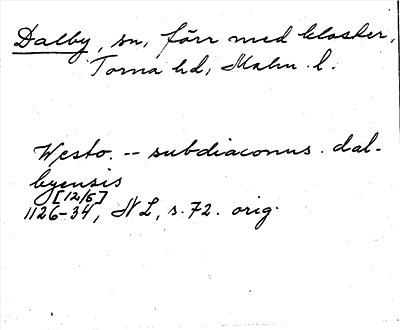 Dalby, sn, förr med kloster,
Torna hd, Malm. l.
Westo. -- subdiaconus. dal-
byensis
[12/5]
1126-34, NL, s. 72. orig.